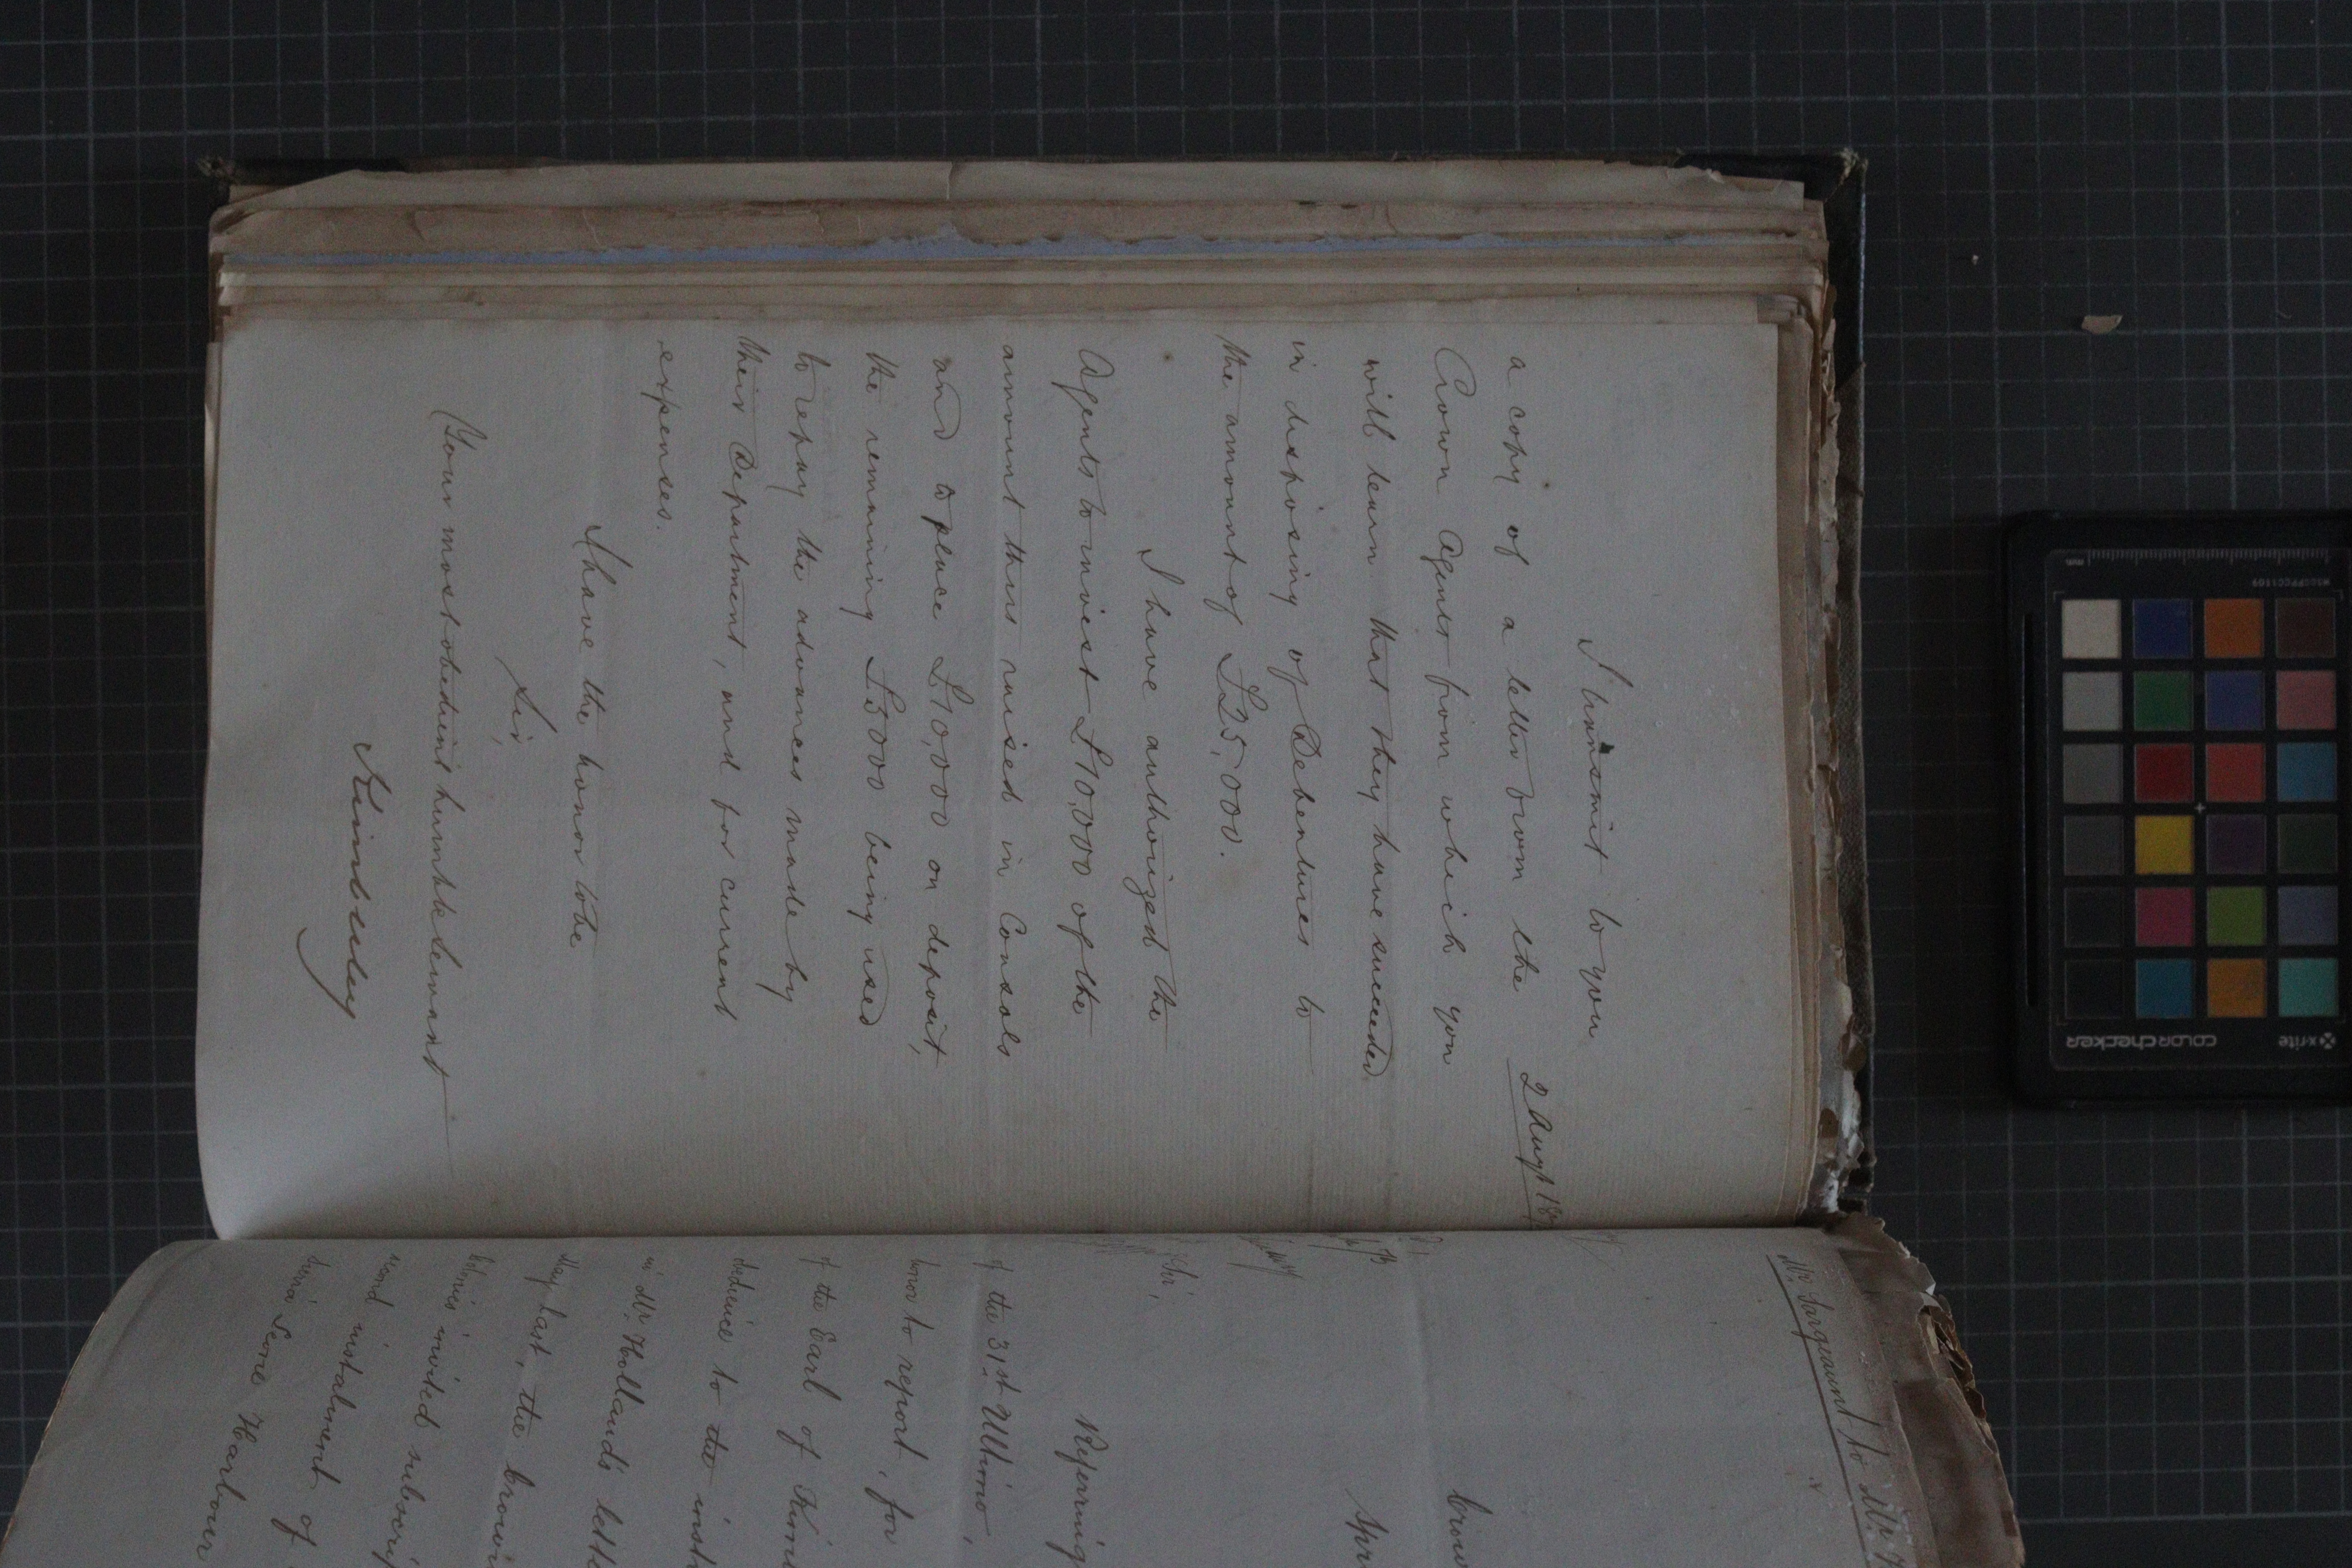 I transmit to you
a copy of a letter from the
2 Augt 18
Crown Agents from which you
will learn that they have succeeded
in disposing of Debentures to
the amount of £25,000.
I have authorized the
Agents to invest £10,000 of the
amount thus raised in Consols
and to place £10,000 on deposit,
the remaining £5000 being used
to repay the advances made by
their Department, and for current
expenses.
I have the honor to be
Sir,
Your most obedient humble Servant
Kimberley
Mr. Sargeaunt to Mr.
Crow
Spri
Sir,
Referring
of the 31st Ultimo,
honor to report, for
of the Earl of Kim
obedience to the inst
in Mr. Holland's lette
May last, the Crown
Colonies invited subscrip
second instalment of
Sierra Leone Harbour
x-rite
colorchecker
MSCCPPCC1109
mm